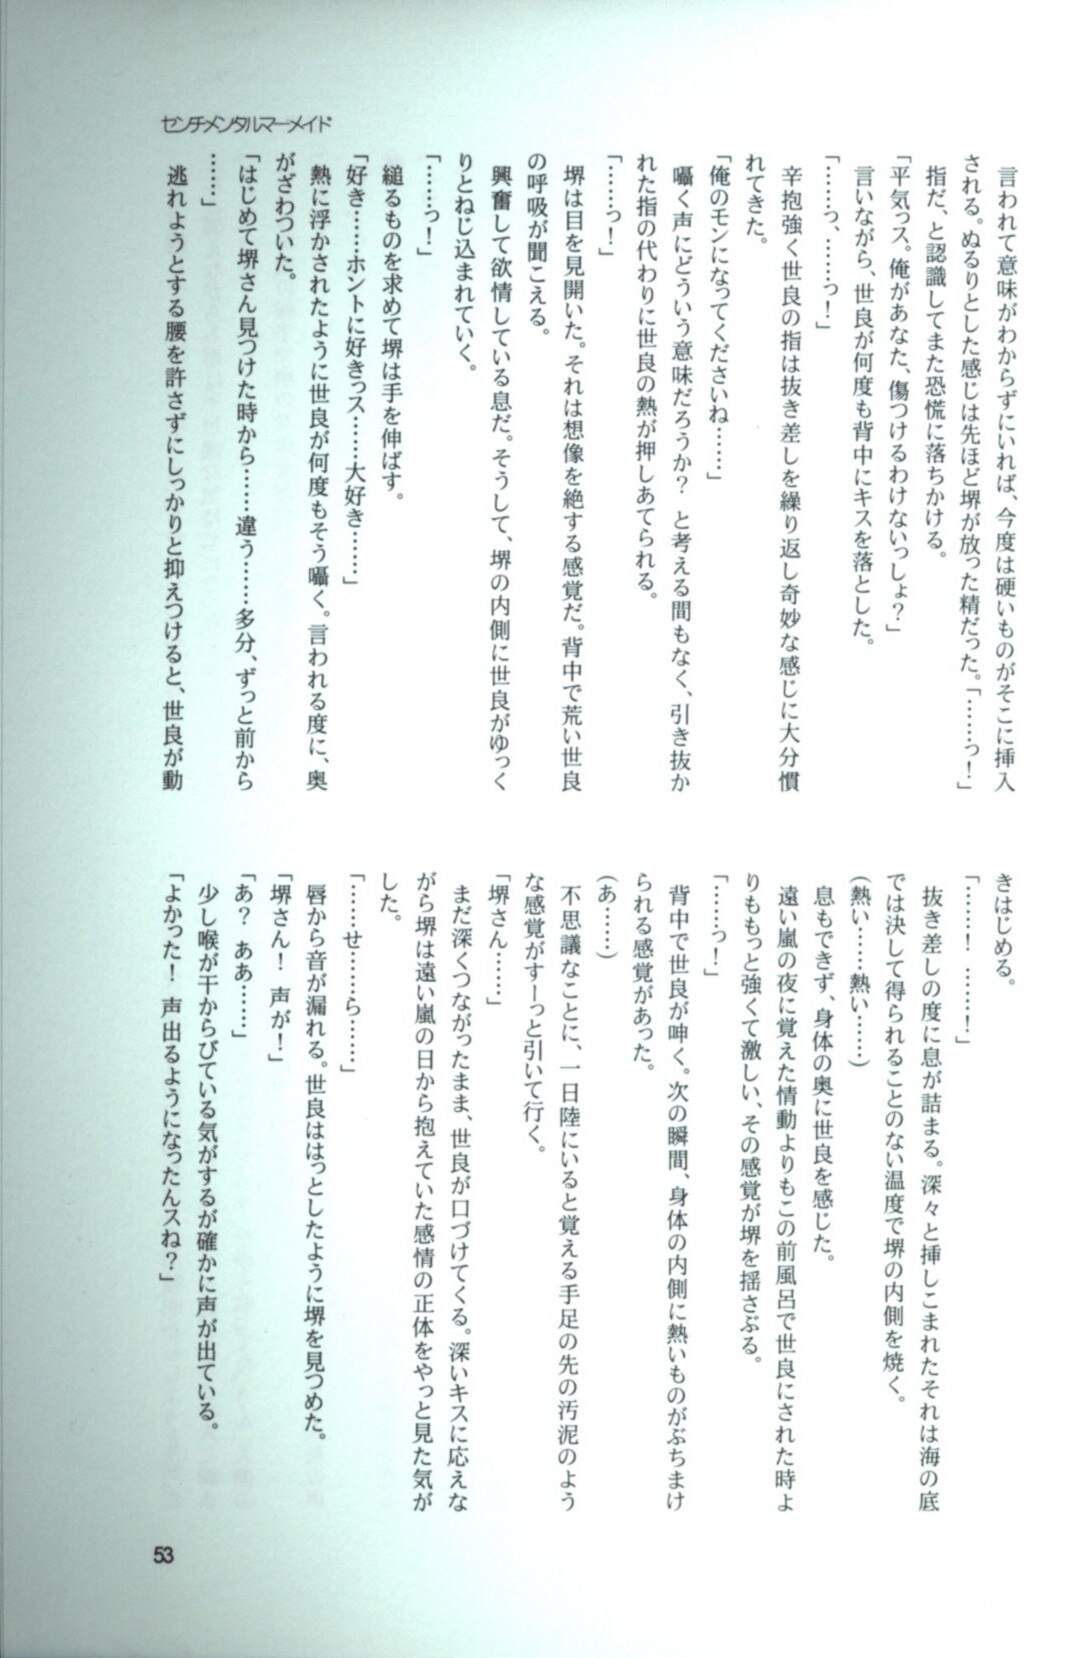 センチメンタルマーメイド
　言われて意味がわからずにいれば、今度は硬いものがそこに挿入
される。ぬるりとした感じは先ほど堺が放った精だった。「……っ！」
　指だ、と認識してまた恐慌に落ちかける。
「平気っス。俺があなた、傷つけるわけないっしょ？」
　言いながら、世良が何度も背中にキスを落とした。
「……っ、……っ！」
　辛抱強く世良の指は抜き差しを繰り返し奇妙な感じに大分慣
れてきた。
「俺のモンになってくださいね……」
　囁く声にどういう意味だろうか？　と考える間もなく、引き抜か
れた指の代わりに世良の熱が押しあてられる。
「……っ！」
　堺は目を見開いた。それは想像を絶する感覚だ。背中で荒い世良
の呼吸が聞こえる。
　興奮して欲情している息だ。そうして、堺の内側に世良がゆっく
りとねじ込まれていく。
「……っ！」
　縋るものを求めて堺は手を伸ばす。
「好き……ホントに好きっス……大好き……」
　熱に浮かされたように世良が何度もそう囁く。言われる度に、奥
がざわついた。
「はじめて堺さん見つけた時から……違う……多分、ずっと前から
……」
　逃れようとする腰を許さずにしっかりと抑えつけると、世良が動
きはじめる。
「……！　……！」
　抜き差しの度に息が詰まる。深々と挿しこまれたそれは海の底
では決して得られることのない温度で堺の内側を焼く。
（熱い……熱い……）
　息もできず、身体の奥に世良を感じた。
　遠い嵐の夜に覚えた情動よりもこの前風呂で世良にされた時よ
りももっと強くて激しい、その感覚が堺を揺さぶる。
「……っ！」
　背中で世良が呻く。次の瞬間、身体の内側に熱いものがぶちまけ
られる感覚があった。
（あ……）
　不思議なことに、一日陸にいると覚える手足の先の汚泥のよう
な感覚がすーっと引いて行く。
「堺さん……」
　まだ深くつながったまま、世良が口づけてくる。深いキスに応えな
がら堺は遠い嵐の日から抱えていた感情の正体をやっと見た気が
した。
「……せ……ら……」
　唇から音が漏れる。世良ははっとしたように堺を見つめた。
「堺さん！　声が！」
「あ？　ああ……」
　少し喉が干からびている気がするが確かに声が出ている。
「よかった！　声出るようになったんスね？」
53